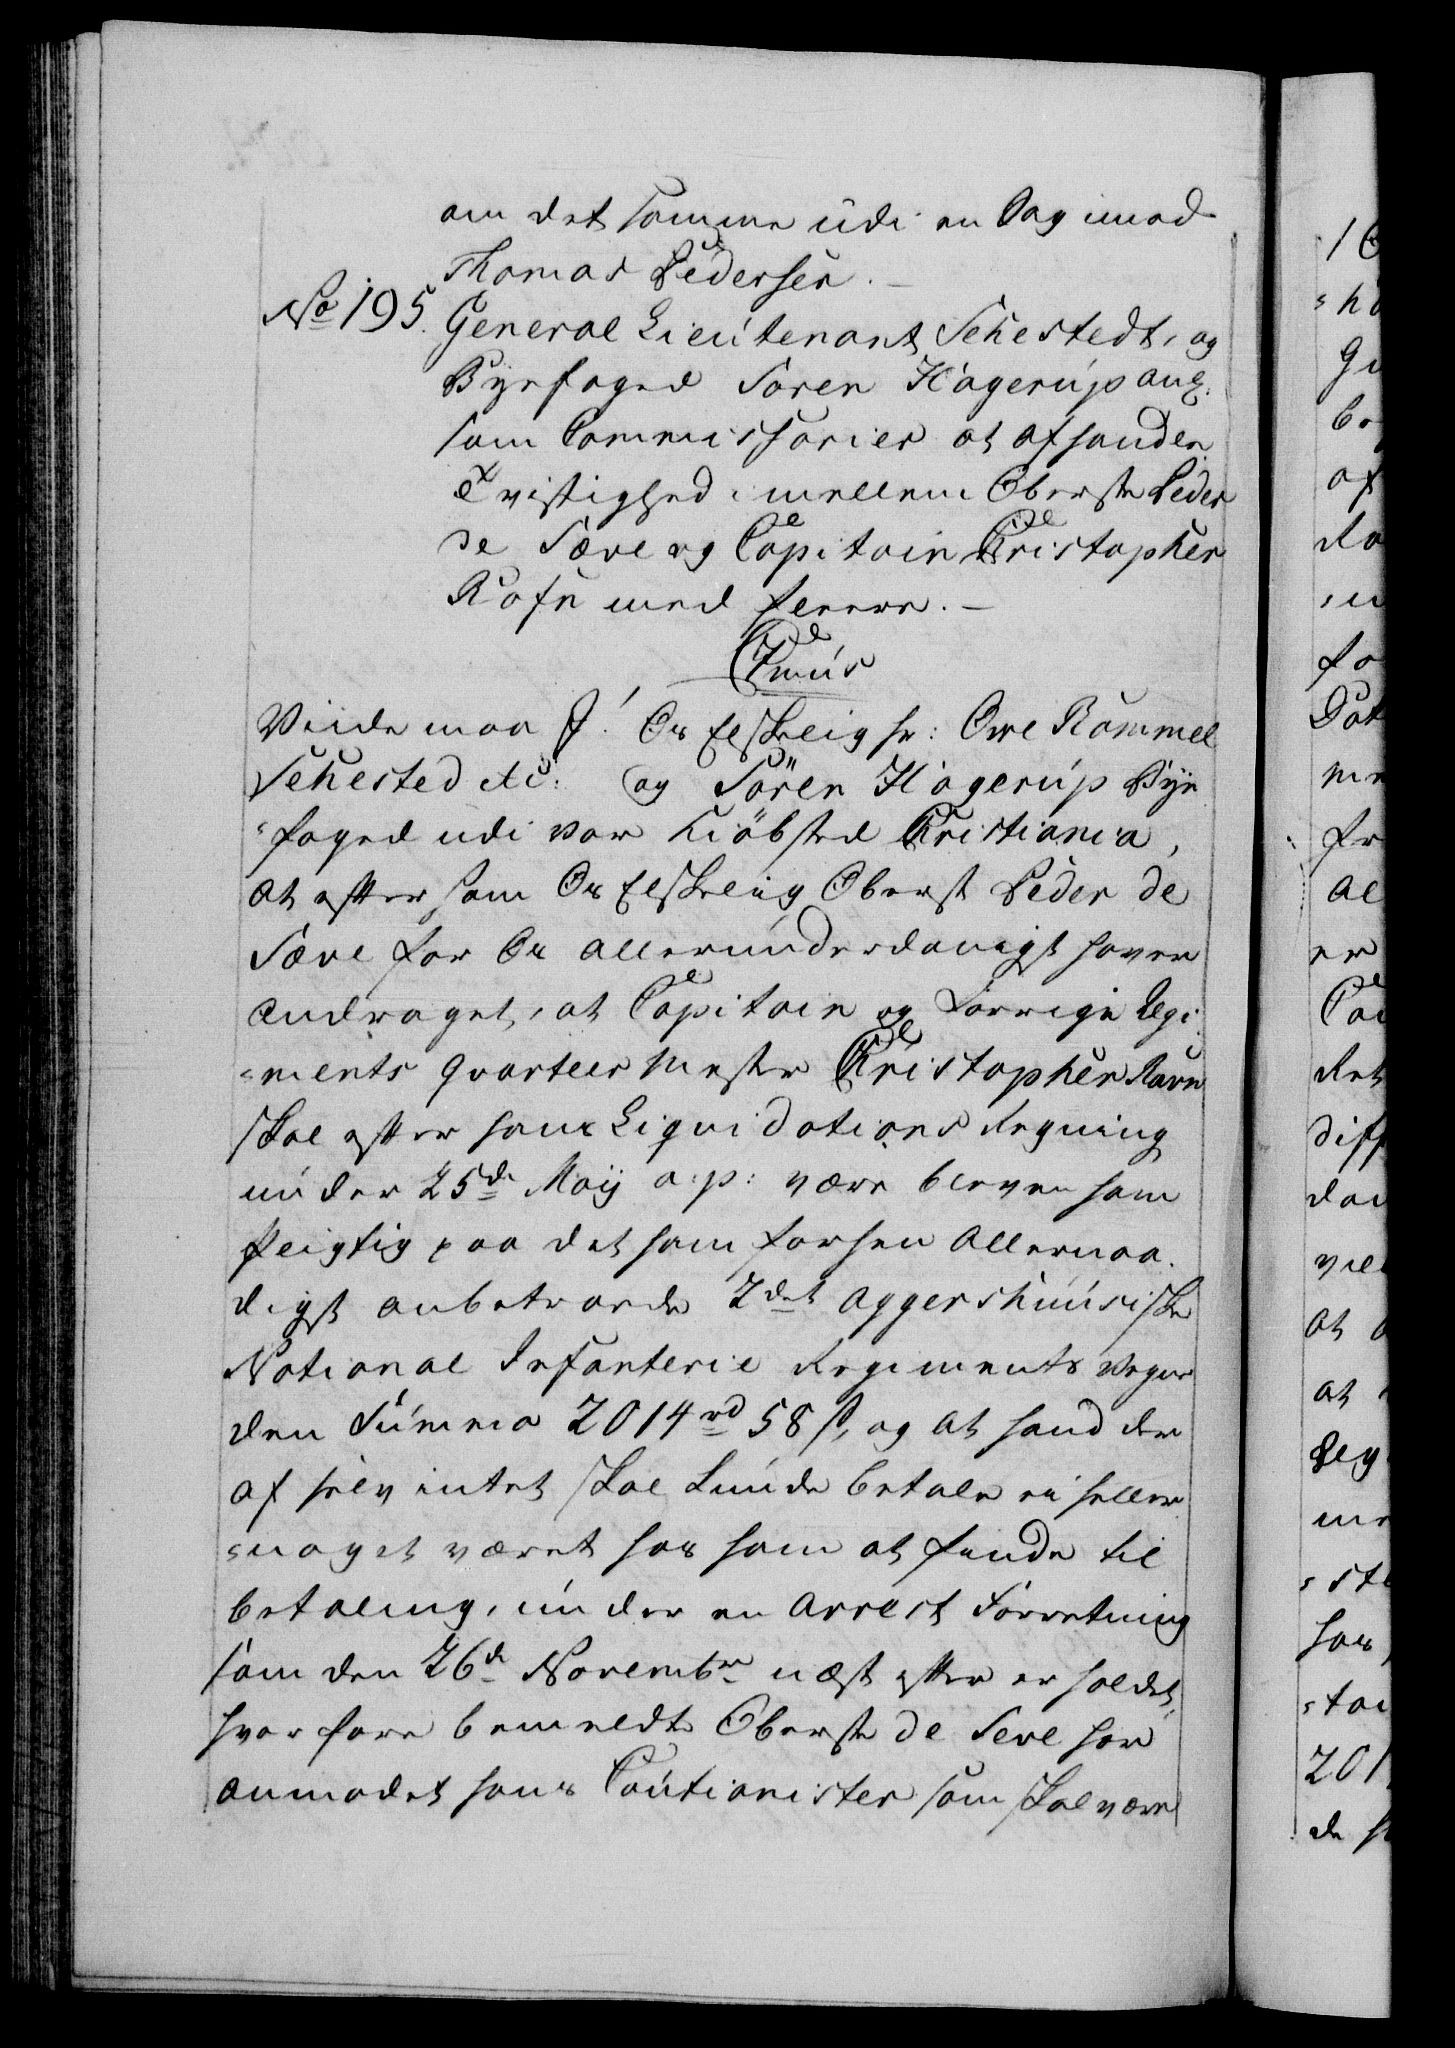 om det samme udi en Sag imod
Thomas Pedersen. —
No 195. General Lieutenant Sehestedt, og
Byefoged Sören Hagerup ang:
som Commissarier at afhandle
Tvistighed imellem Oberste Peder
de Seve og Capitain Christopher
Rafn med fleere. —
C 7mus
Viide maa I! Os Elskelig Hr: Owe Rammel
Sehested etc: og Sören Hagerup Bye
=foged udi vor Kiöbsted Christiania,
at eftersom Os Elskelig Oberst Peder de
Seve for Os allerunderdanigst haver
andraget, at Capitain og forrige Regi
=ments Qvarteer Mester Christopher Ravn
skal efter hans Liquidations Regning
under 25de Maij a: p: være bleven ham
skyldig paa det ham forhen Allernaa
digst anbetroede 2det Aggershuusiske
National Infanterie Regiments vegne
den Summa 2014 rd 58 s, og at hand der
af selv intet skal kunde betale ei heller
=noget været hos ham at finde til
betaling, under en Arrest Forretning
som den 26de Novembr næst efter er holdet,
hvorfore bemeldte Oberste de Seve har
anmodet hans Cautionister som skal være